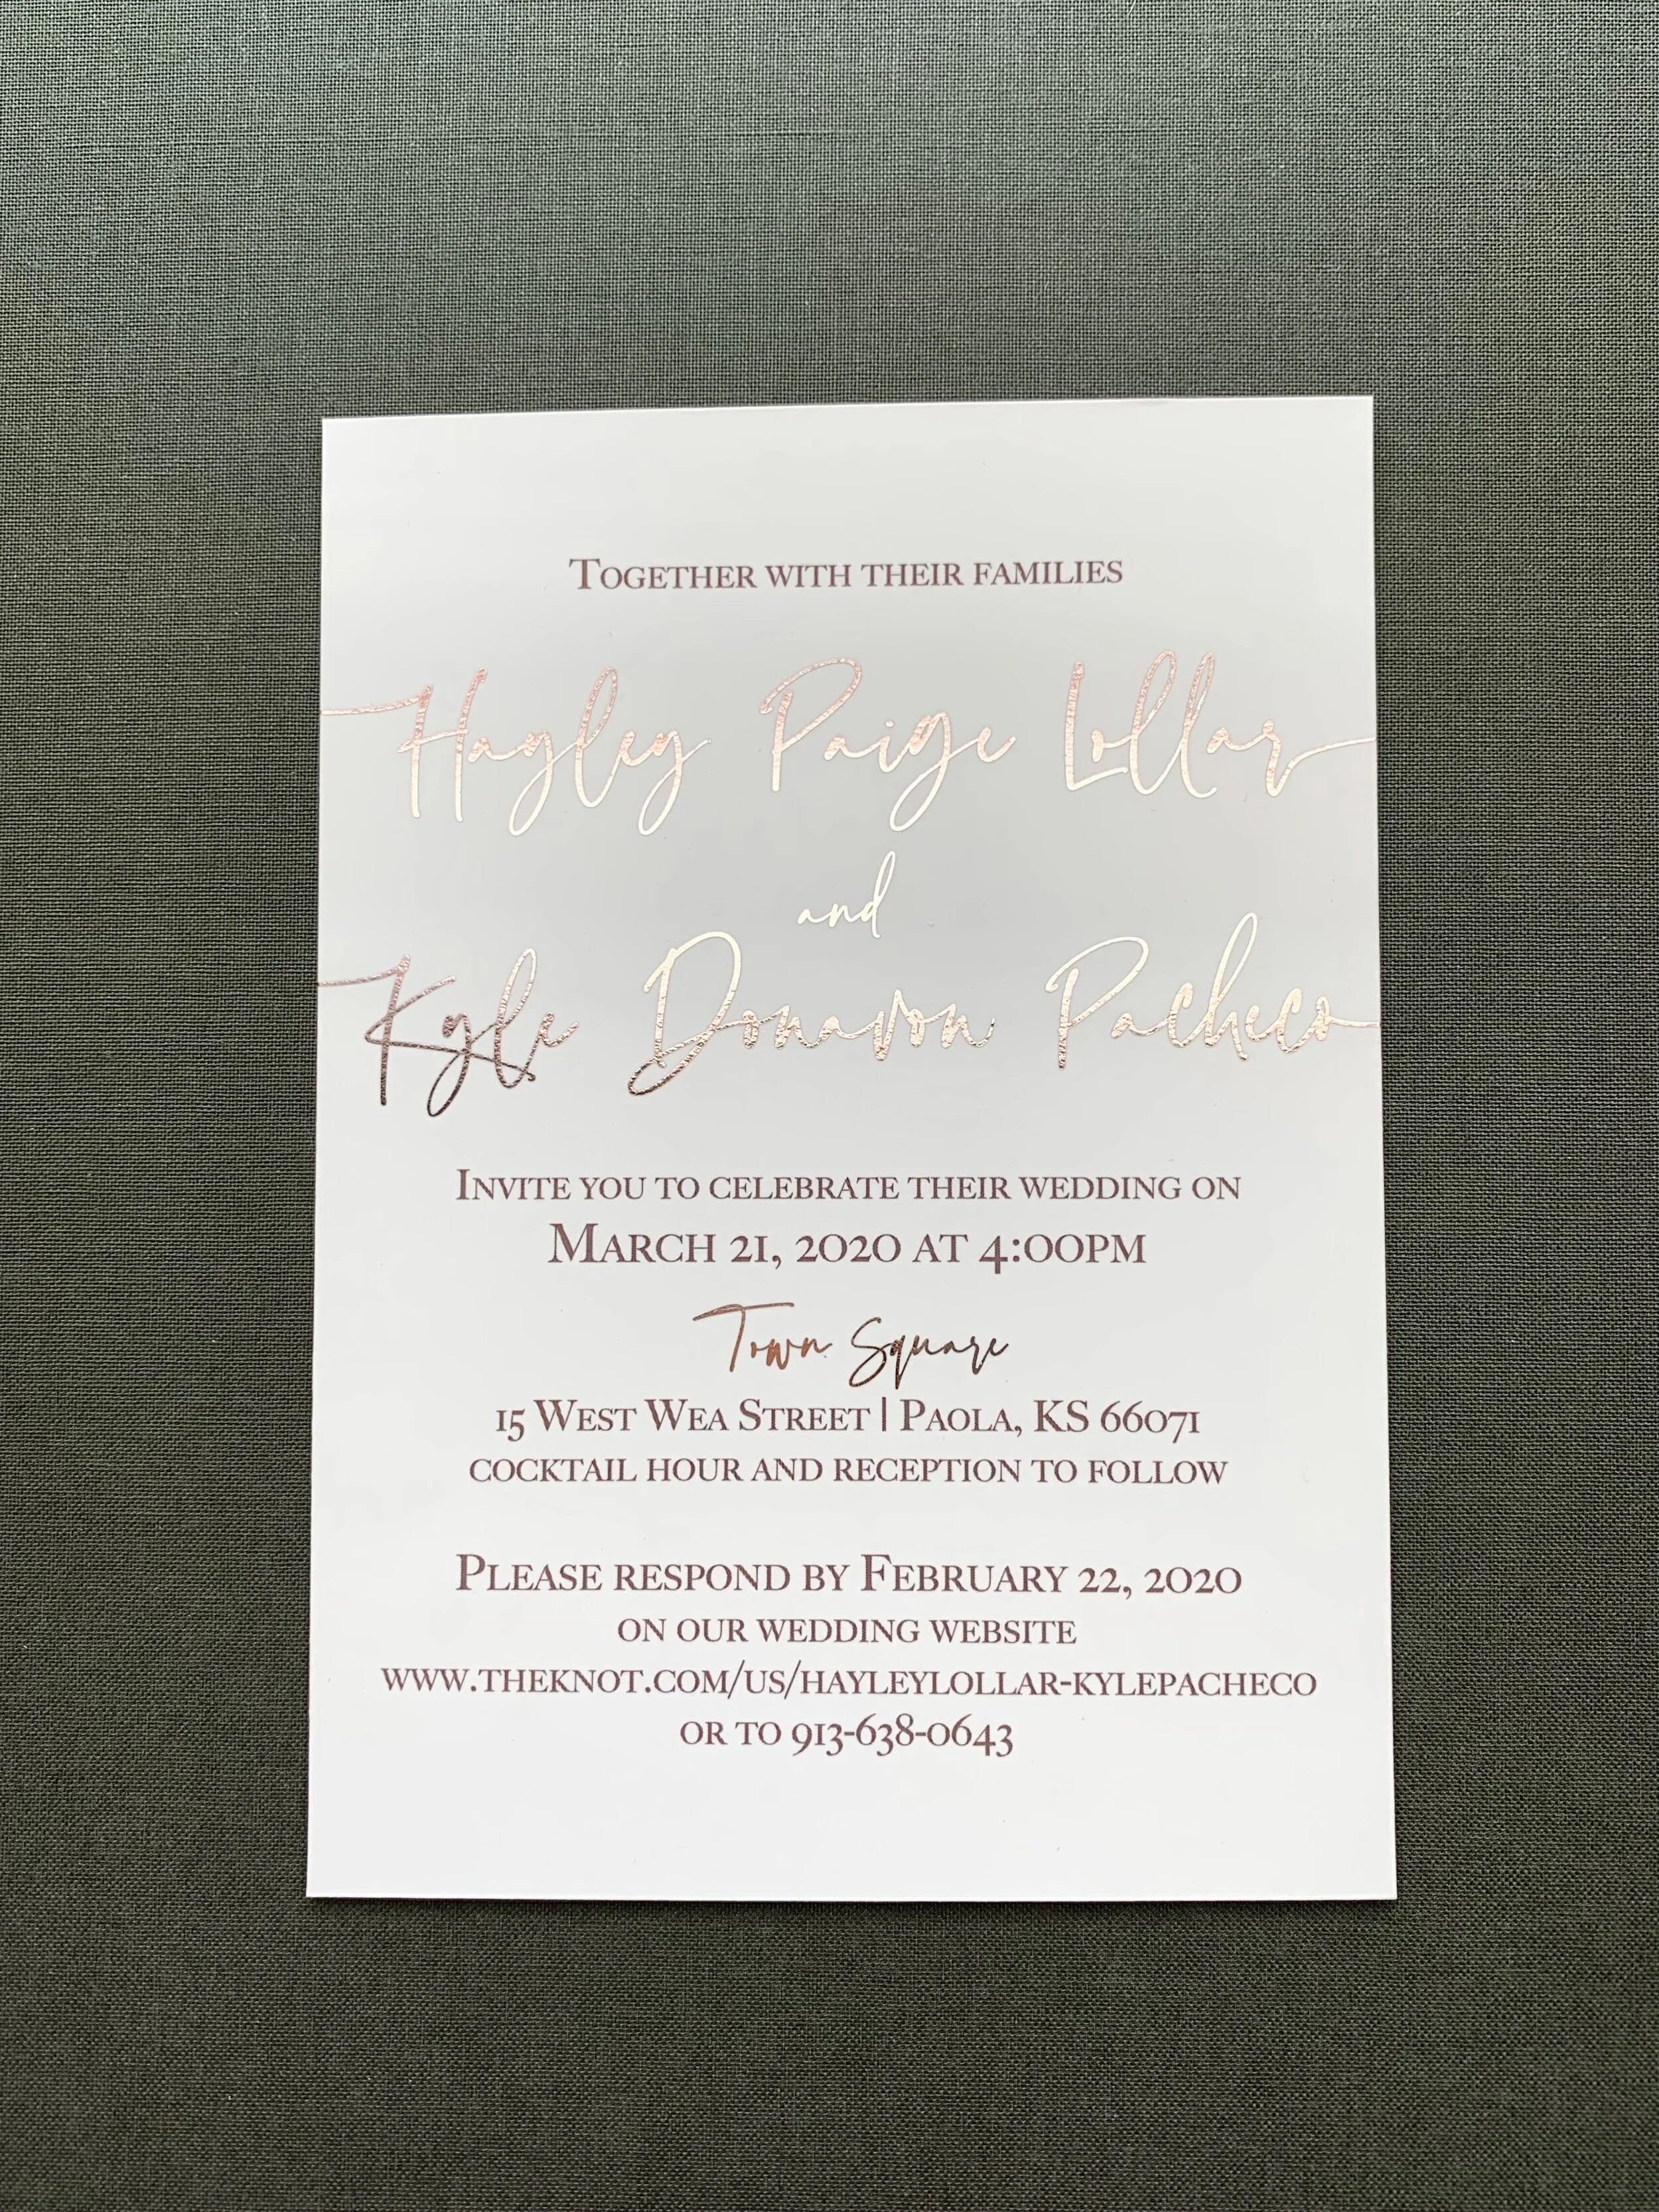 Together with their families
Hayley Paige Lollar
and
Kyle Donavon Pacheco
Invite you to celebrate their wedding on
March 21, 2020 at 4:00pm
Town Square
15 West Wea Street | Paola, KS 66071
cocktail hour and reception to follow
Please respond by February 22, 2020
on our wedding website
www.theknot.com/us/hayleylollar-kylepacheco
or to 913-638-0643